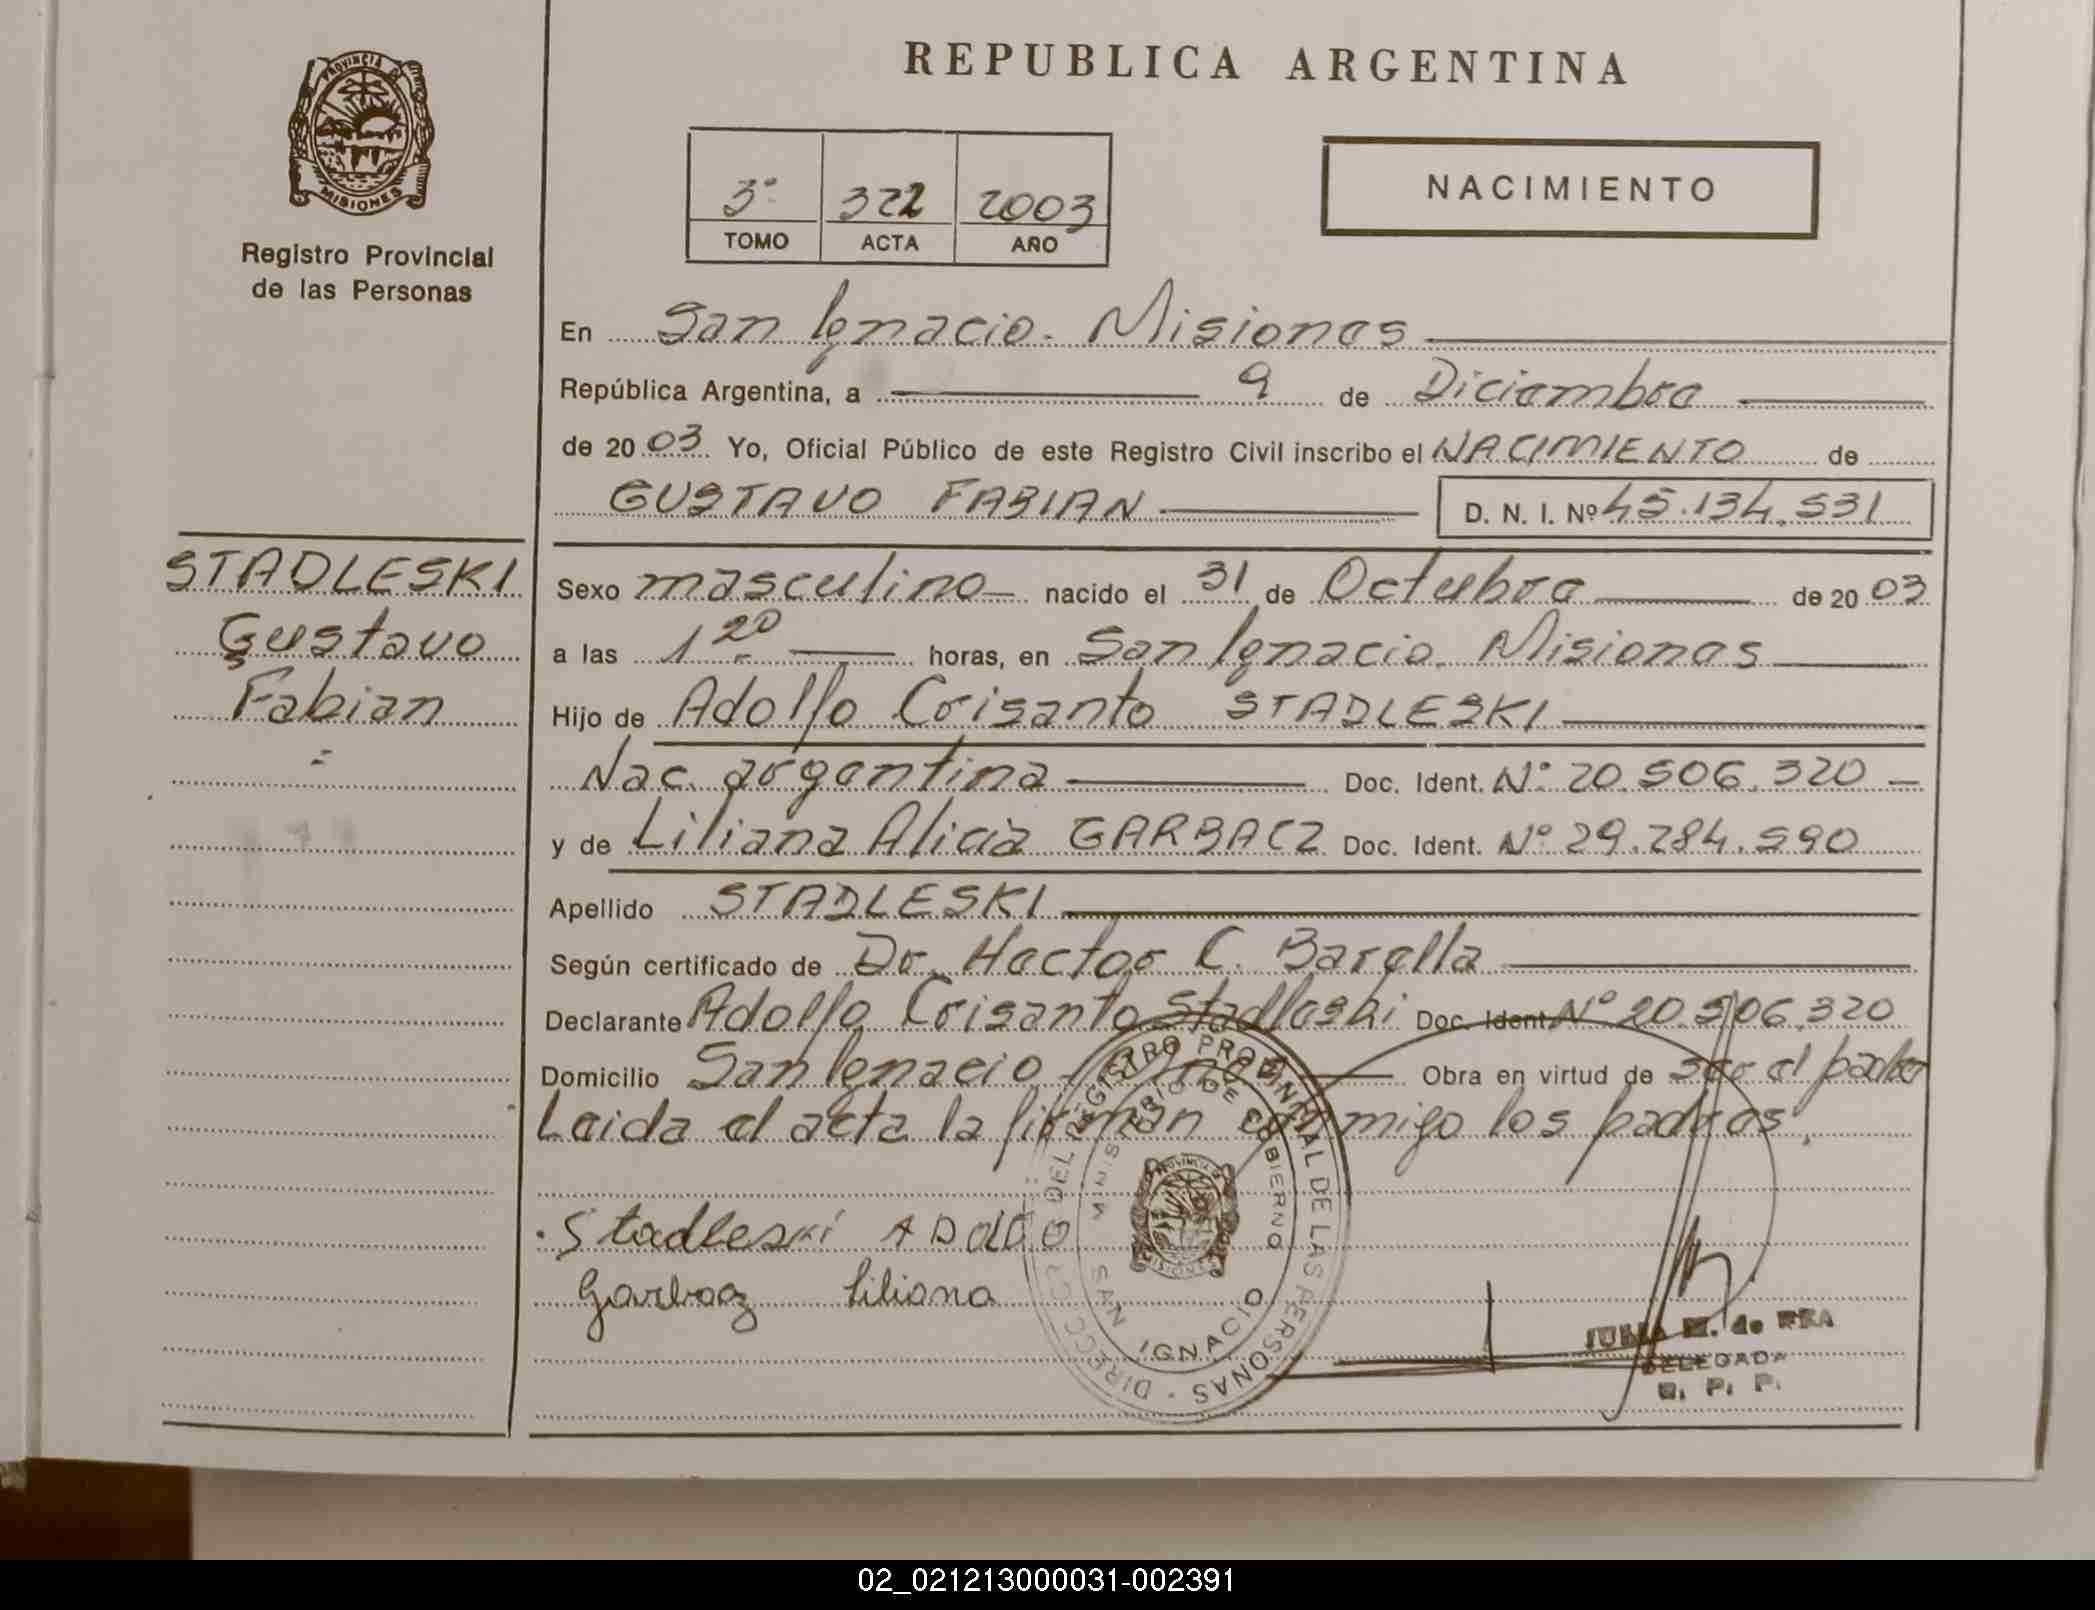 REPUBLICA ARGENTINA
PROVINCIA DE
MISIONES
Registro Provincial
de las Personas
3º 322 2003
TOMO ACTA AÑO
NACIMIENTO
En San Ignacio. Misiones
República Argentina, a 9 de Diciembre
de 2003 Yo, Oficial Público de este Registro Civil inscribo el NACIMIENTO de
GUSTAVO FABIAN D. N. I. Nº 45.134.531
STADLESKI
Gustavo
Fabian
=
Sexo masculino nacido el 31 de Octubre de 2003
a las 1 20 horas, en San Ignacio. Misiones
Hijo de Adolfo Crisanto STADLESKI
Nac. argentina Doc. Ident. Nº 20.506.320
y de Liliana Alicia GARBACZ Doc. Ident. Nº 29.284.590
Apellido STADLESKI
Según certificado de Dr. Hector C. Barella
Declarante Adolfo Crisanto Stadleski Doc. Ident. Nº 20.506.320
Domicilio San Ignacio Obra en virtud de ser el padre
Leida el acta la firman conmigo los padres.
Stadleski ADOLFO
Garbacz Liliana
DIRECC. G DEL REGISTRO PROVINCIAL DE LAS PERSONAS
MINISTERIO DE GOBIERNO
SAN IGNACIO
PROVINCIA
MISIONES
M. de REA
DELEGADA
R. P. P.
02_021213000031-002391